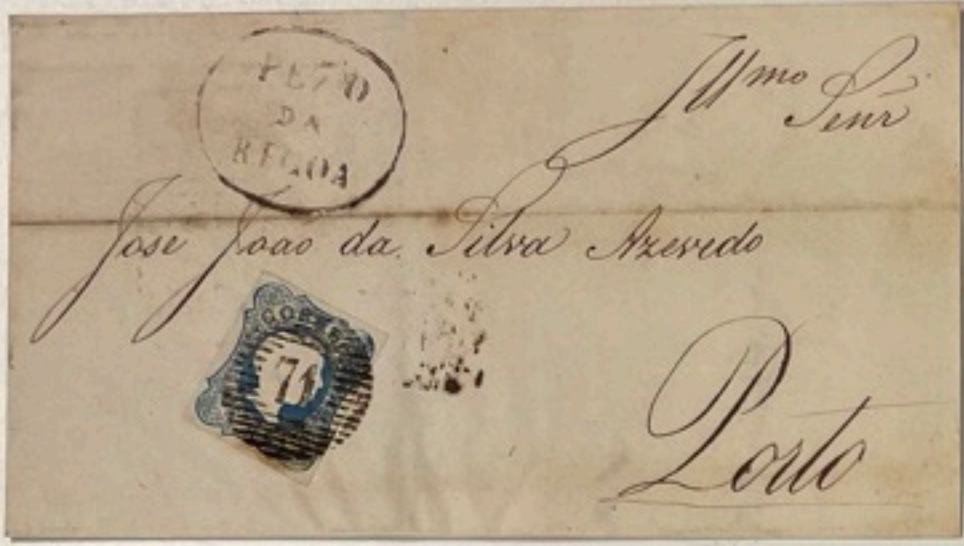 PEZO
DA
REGOA
Illmo
Senr
Jose Joao da Silva Azevedo
CORREIO
Porto